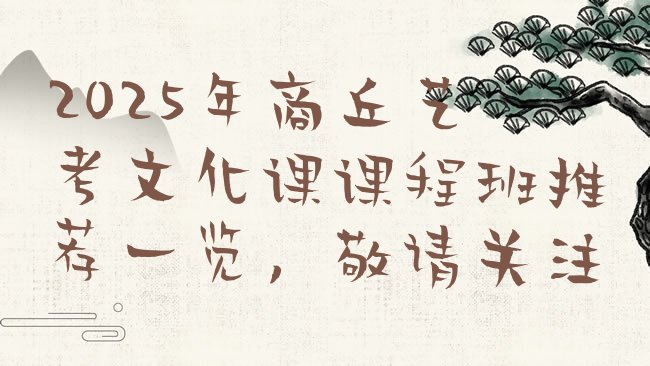 2025年商丘艺
考文化课课程班推
荐一览，敬请关注